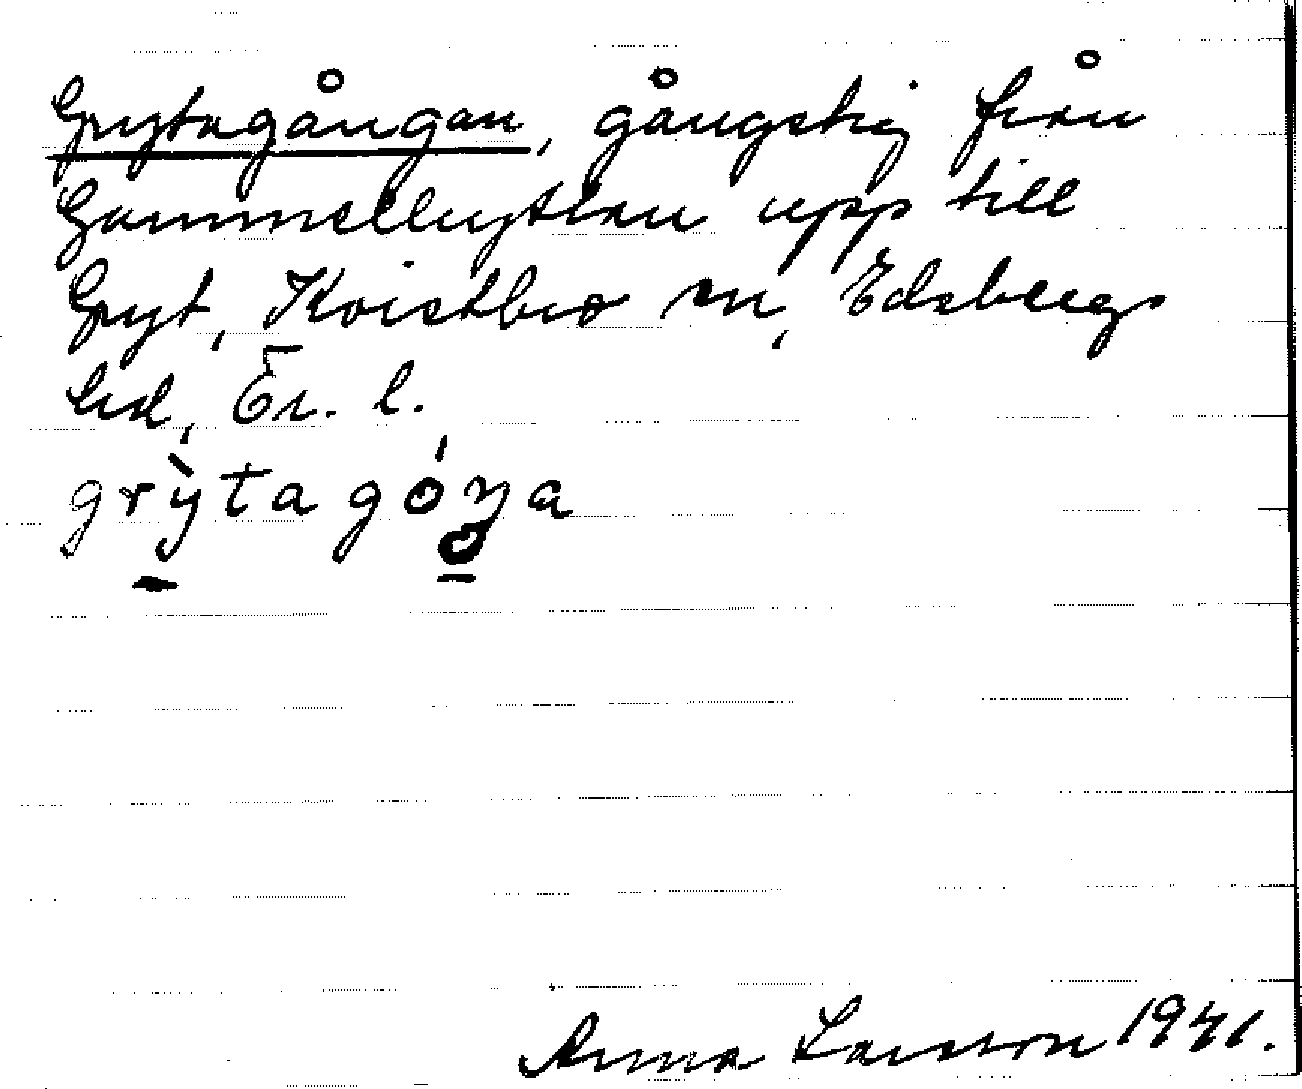 Grytagången, gångstig från
Gammelhyttan upp till
Gryt, Kvistbro sn, Edsbergs
hd, Ör. l.
grỳtagóŋa
Anna Larsson 1941.